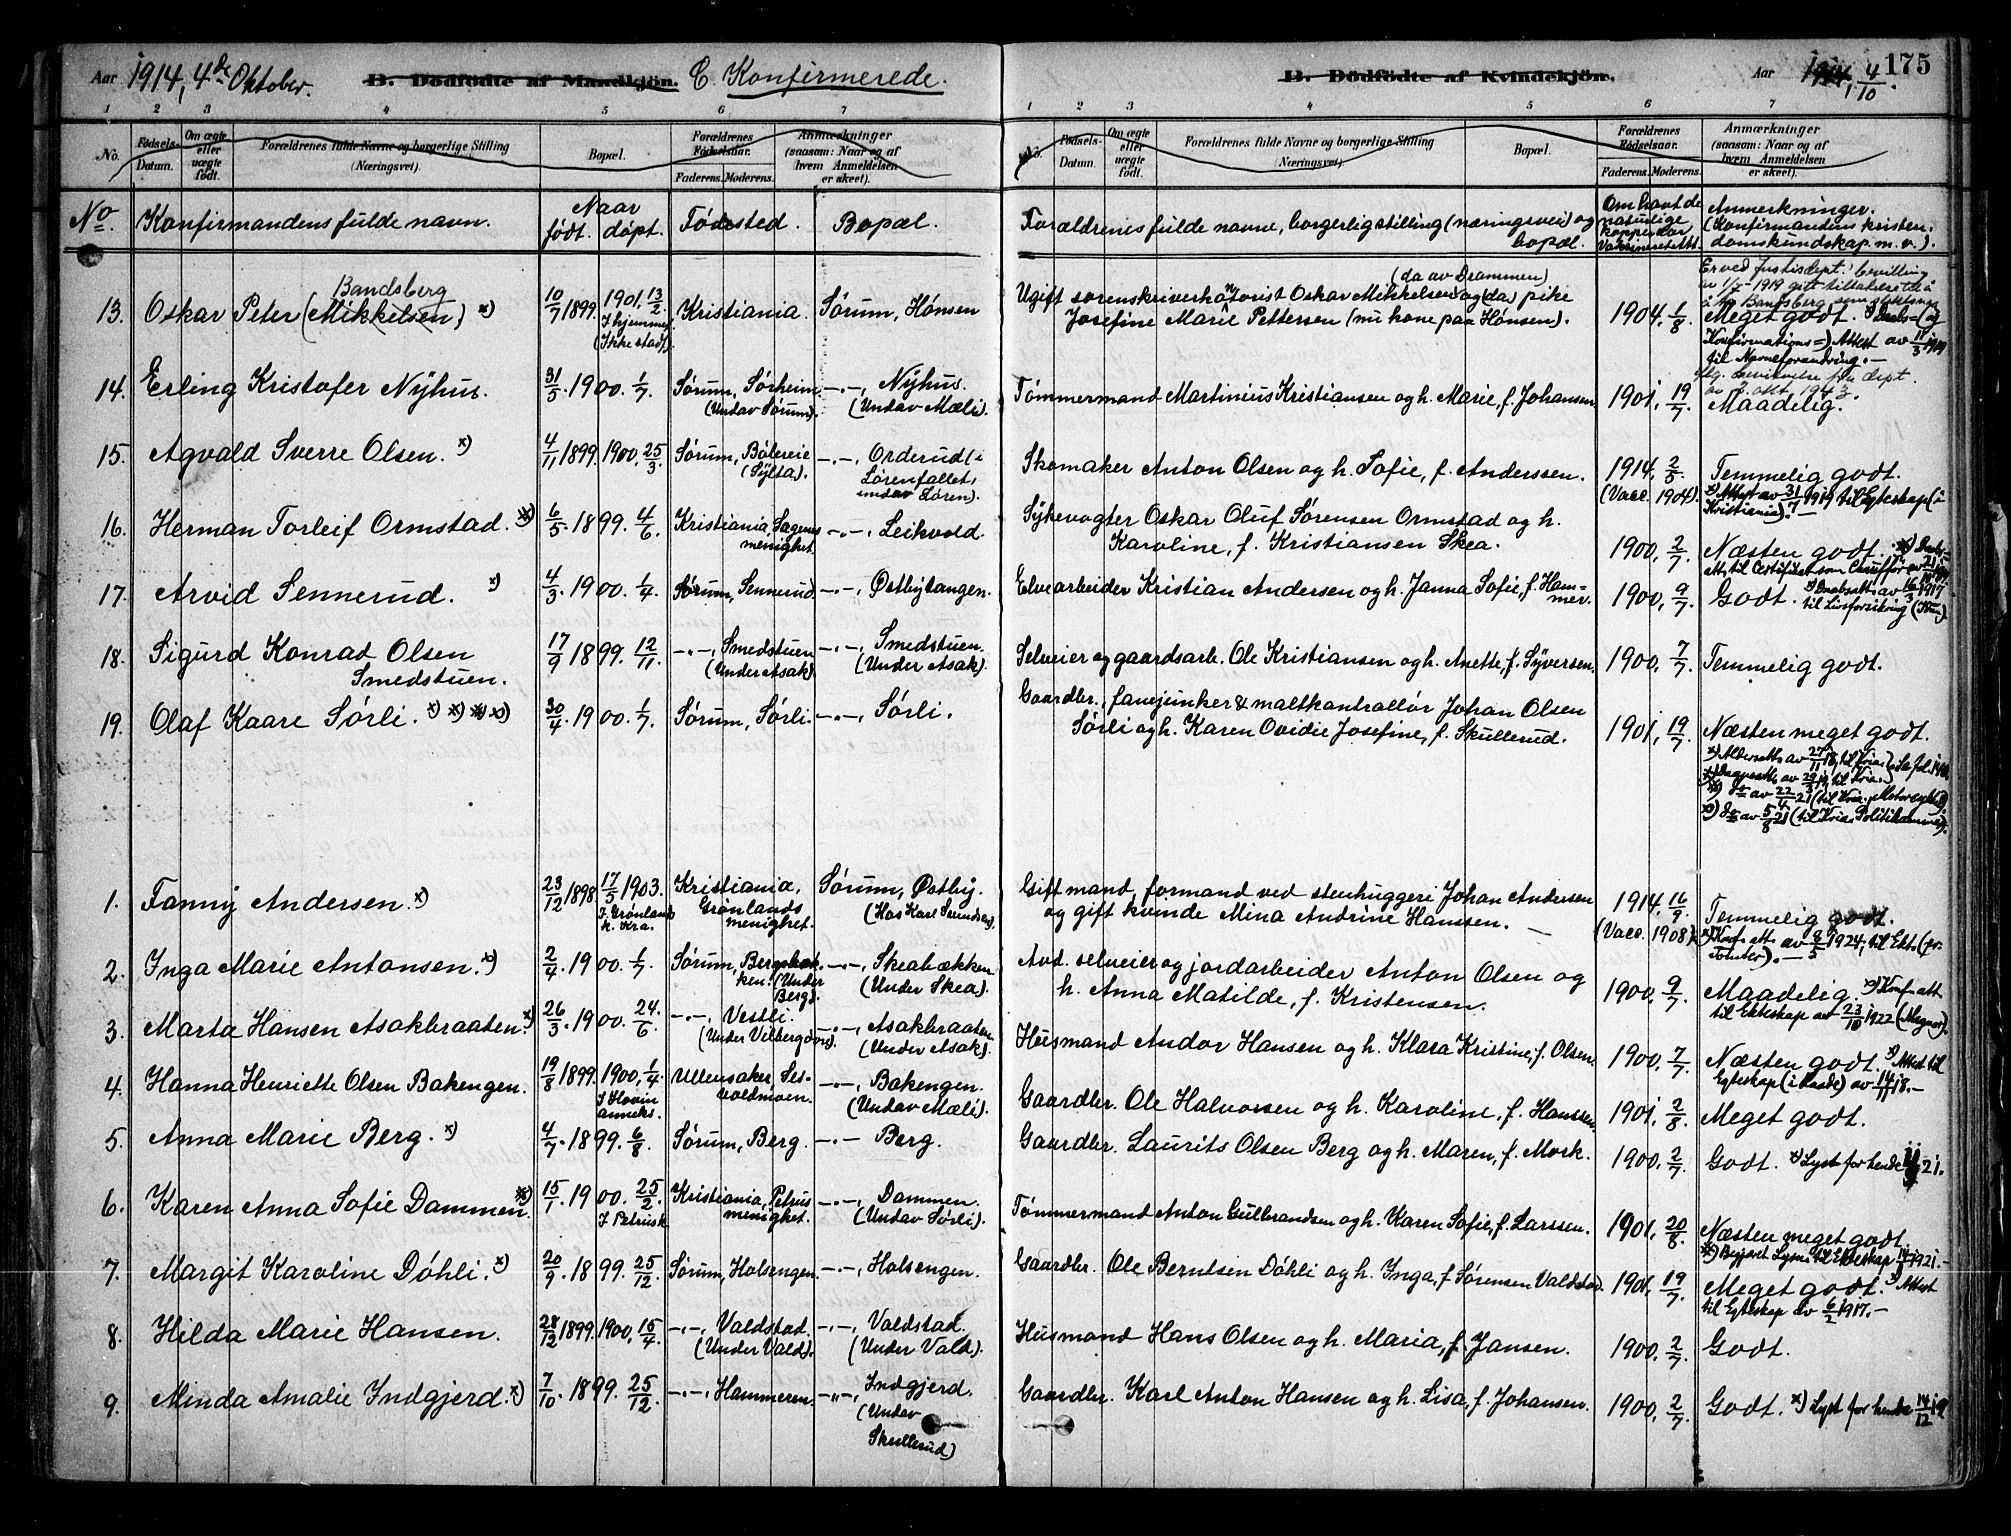 Aar 1914, 4de Oktober. B. Dødfødte af Mandkjøn. C. Konfirmerede. B. Dødfødte af Kvindekjøn. Aar 1914, 4/10. 175
1 2 3 4 5 6 7 1 2 3 4 5 6 7
No. Fødsels-Datum. Om ægte eller uægte født. Forældrenes fulde Navne og borgerlige Stilling (Næringsvei). Bopæl. Forældrenes Fødselsaar. Faderens. Moderens. Anmærkninger (saasom: Naar og af hvem Anmeldelsen er skeet).
No. Fødsels-Datum. Om ægte eller uægte født. Forældrenes fulde Navne og borgerlige Stilling (Næringsvei). Bopæl. Forældrenes Fødselsaar. Faderens. Moderens. Anmærkninger (saasom: Naar og af hvem Anmeldelsen er skeet).
No. Konfirmandens fulde navn. Naar født. døpt. Fødested. Bopæl. Forældrenes fulde navne, borgerlig stilling (næringsvei) og bopæl. Om havt de naturlige kopper eller Anmerkninger. (Konfirmandens kristendomskundskap m.v.).
Bandsberg (da av Drammen) Er ved Justisdept. bevilling
13. Oskar Peter (Mikkelsen) x) 10/7 1899. 1901, 13/2 Kristiania. Sørum, Hønsen Ugift sorenskriverkontorist Oskar Mikkelsen og (da) pike 1904, 1/8 Meget godt.
I hjemmet (Ikke stadf). Josefine Marie Pettersen (nu kone paa Hønsen). Konfirmations=) Attest av 11/3 1919
til Navneforandring.-
14. Erling Kristofer Nyhus. 31/5. 1900. 1/7. Sørum, Sørheim (Undav Sørum). -"-, Nyhus. (Undav Mæli). Tømmermand Martinius Kristiansen og h. Marie, f. Johansen 1901, 19/7. Maadelig.
15. Agvald Sverre Olsen. x) 4/11 1899. 1900, 25/3. Sørum, Bølereie (Sylta). -"-, Orderud (i Lørenfallet, undav Løren). Skomaker Anton Olsen og h. Sofie, f. Anderssen. 1914, 2/5. (Vacc. 1904). Temmelig godt.
x) Attest av 31/7 1919 til Egteskap (i Kristiania).-
16. Herman Torleif Ormstad. x) 6/5. 1899. 4/6. Kristiania, Sagenes menighet -"-, Leikvold. Sykevogter Oskar Oluf Sørensen Ormstad og h.
Karoline, f. Kristiansen Skea. 1900, 2/7. Næsten godt.
17. Arvid Sennerud. x) 4/3. 1900. 1/4. Sørum, Sennerud -"-, Østbytangen. Elvearbeider Kristian Andersen og h. Janna Sofie, f. Hammer. 1900, 9/7. Godt. x) Daabsatt. av 16/3 1917 til Livsforsikring
18. Sigurd Konrad Olsen Smedstuen. 17/9 1899. 12/11. -"-, Smedstuen (Under Asak) -"-, Smedstuen. (Under Asak). Selveier og gaardsarb. Ole Kristiansen og h. Anette, f. Syversen. 1900, 7/7. Temmelig godt.
19. Olaf Kaare Sørli. x) x) x) x) 30/4. 1900. 1/7. Sørum, Sørli. -"-, Sørli. Gaardbr., fanejunker & maltkontrollør Johan Olsen
Sørli og h. Karen Ovidie Josefine, f. Skullerud. 1901, 19/7. Næsten meget godt.
1. Fanny Andersen. x) 23/12 1898. 17/5 1903. I Grønlands k. Kra. Kristiania, Grønlands menighet. Sørum, Østby. Gift mand, formand ved stenhuggeri Johan Andersen
og gift kvinde Mina Andrine Hansen. 1914, 16/9. (Vacc. 1908). Temmelig godt.
2. Inga Marie Antonsen. x) 2/4. 1900. 1/7. Sørum, Bergsbækken. (Under Berg). -"-, Skeabækken (Under Skea). Avd. selveier og jordarbeider Anton Olsen og
h. Anna Matilde, f. Kristensen. 1900, 9/7. Maadelig. x) Konf.att
til Ekteskap av 23/10 1922 (Magnor).
3. Marta Hansen Asakbraaten. x) 26/3. 1900. 24/6. -"-, Vestli. -"-, Asakbraaten (Under Asak). Husmand Andor Hansen og h. Klara Kristine, f. Olsen. 1900, 7/7. Næsten godt. x) Attest til
4. Hanna Henriette Olsen Bakengen. 19/8 1899. 1900, 1/4. I Hovin anneks. Ullensaker, Sessvoldmoen. -"-, Bakengen. (Undav Mæli). Gaardbr. Ole Halvorsen og h. Karoline, f. Hanssen. 1901, 2/8. Meget godt.
5. Anna Marie Berg. x) 4/7. 1899. 6/8. Sørum, Berg. -"- Berg. Gaardbr. Laurits Olsen Berg og h. Maren, f. Mork. 1900, 2/7. Godt. x) Lyst for hende 21.
6. Karen Anna Sofie Dammen. x) 15/1. 1900. 25/2. I Petrusk. Kristiania, Petrus menighet. -"-, Dammen. (Undav Sørli). Tømmermand Anton Gulbrandsen og h. Karen Sofie, f. Larssen. 1901, 20/8. Næsten meget godt.
7. Margit Karoline Døhli. x) 20/9. 1899. 25/12. Sørum, Holsengen. -"-, Holsengen. Gaardbr. Ole Berntsen Døhli og h. Inga, f. Sørensen Valdstad. 1901, 19/7. Meget godt. x) Attest
til Egteskap av 6/2 1917.-
8. Hilda Marie Hansen. 28/12 1899. 1900, 15/4. -"-, Valdstad. (Under Vald). -"-, Valdstad. (Under Vald). Husmand Hans Olsen og h. Maria, f. Jansen. 1900, 2/7. Godt.
9. Minda Amalie Indgjerd. x) 7/10. 1899. 25/12. -"-, Hammeren. -"-, Indgjerd. (Undav Skullerud) Gaardbr. Karl Anton Hansen og h. Lisa, f. Johansen. 1900, 2/7. Godt. x) Lyst for hende 14/12 19